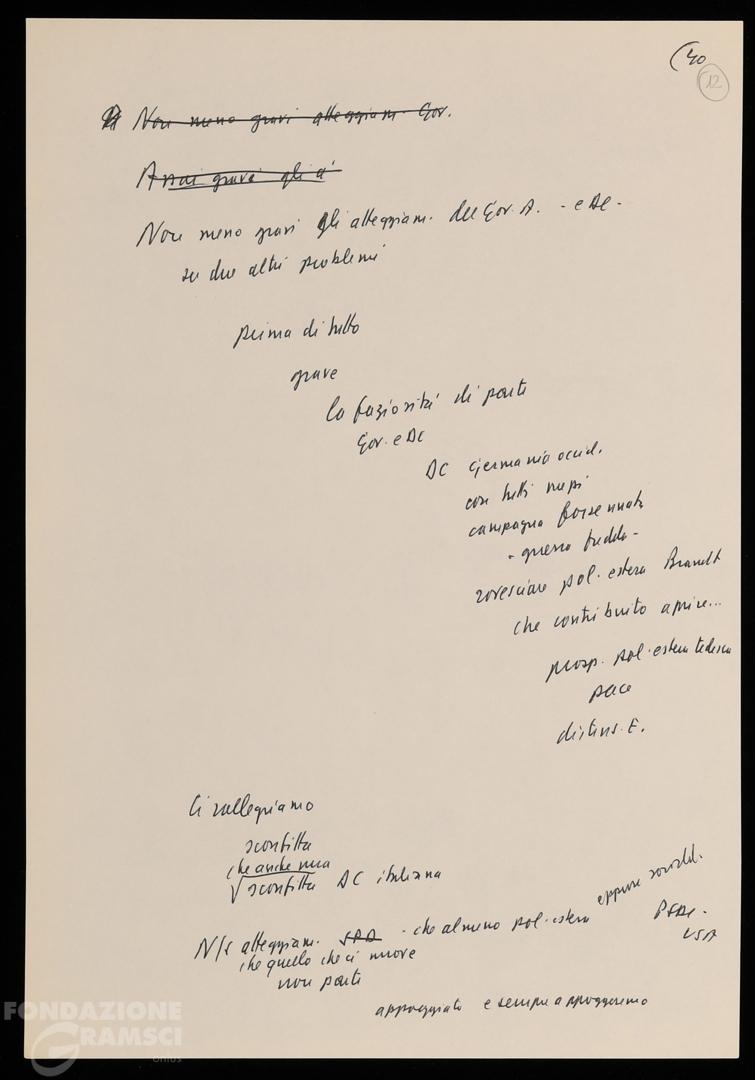 (40
12
Non meno gravi atteggiam. Gov.
Assai gravi gli a
Non meno gravi gli atteggiam. del Gov. A. - e DC -
su due altri problemi
prima di tutto
grave
la faziosità di parte
Gov. e DC
DC Germania occid.
con tutti mezzi
campagna forsennata
- guerra fredda -
rovesciare pol. estera Brandt
che contribuito aprire...
prosp. pol. estera tedesca
pace
distens. E.
Ci rallegriamo
sconfitta
che anche una
√ sconfitta DC italiana
N/s atteggiam. SPD - che almeno pol. estera eppure socialdd.
PSDI -
USA
che quello che ci muove
non parte
appoggiato e sempre appoggeremo
FONDAZIONE
GRAMSCI
onlus